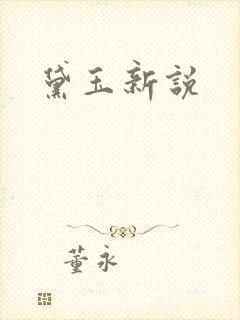 黛玉新説
董永